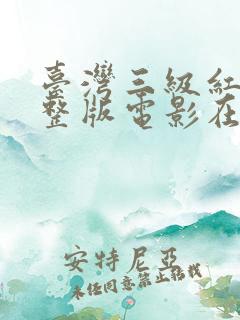 臺灣三級紅
整版電影在
安特尼亞
未任同意禁止轉載